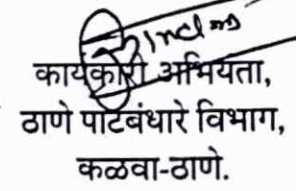 कार्यकारी अभियंता,
ठाणे पाटबंधारे विभाग,
कळवा-ठाणे.